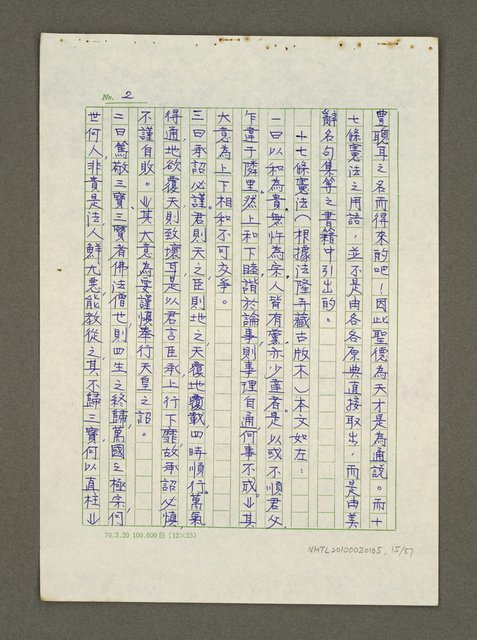 No. 2
豊聰耳之名而得來的吧！因此聖德為天才是為通說。而十
七條憲法之用語，並不是由各各原典直接取出，而是由美
辭名句集等之書籍中引出的。
十七條憲法（根據法隆寺藏古版木）本文如左：
一曰以和為貴無忤為宗人皆有黨亦少達者是以或不順君父
乍違于隣里。然上和下睦諧於論事則事理自通何事不成。⇓其
大意為上下相和不可交爭。
三曰承詔必謹。君則天之臣則地之天覆地載四時順行萬氣
得通地欲覆天則致壞耳是以君言臣承上行下靡故承詔必慎
不謹自敗。⇓其大意為要謹慎奉行天皇之詔。
二曰篤敬三寶、三寶者佛法僧也則四生之終歸萬國之極宗何
世何人非貴是法人鮮尤惡能教從之其不歸三寶何以直枉⇓
70.3.20 100.000份 (12×25)
NMTL20100020105, 15/57